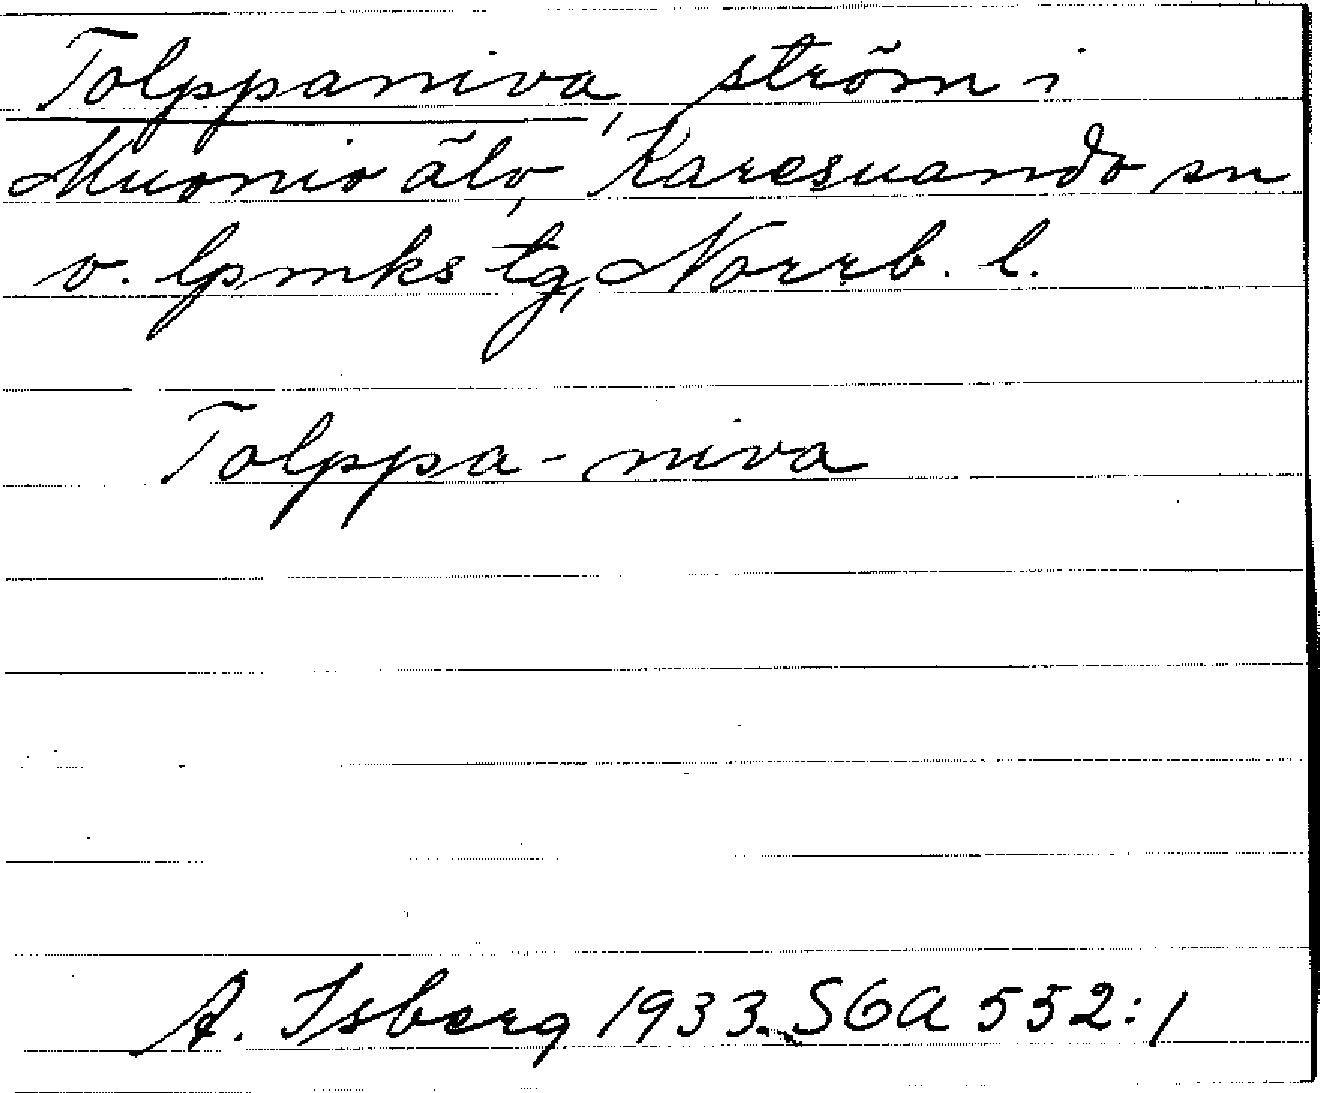 Tolppaniva, ström i
Muonio älv, Karesuando sn
v. lpmks tg, Norrb. l.
Tolppa-niva
A. Isberg 1933. SGA 552:1